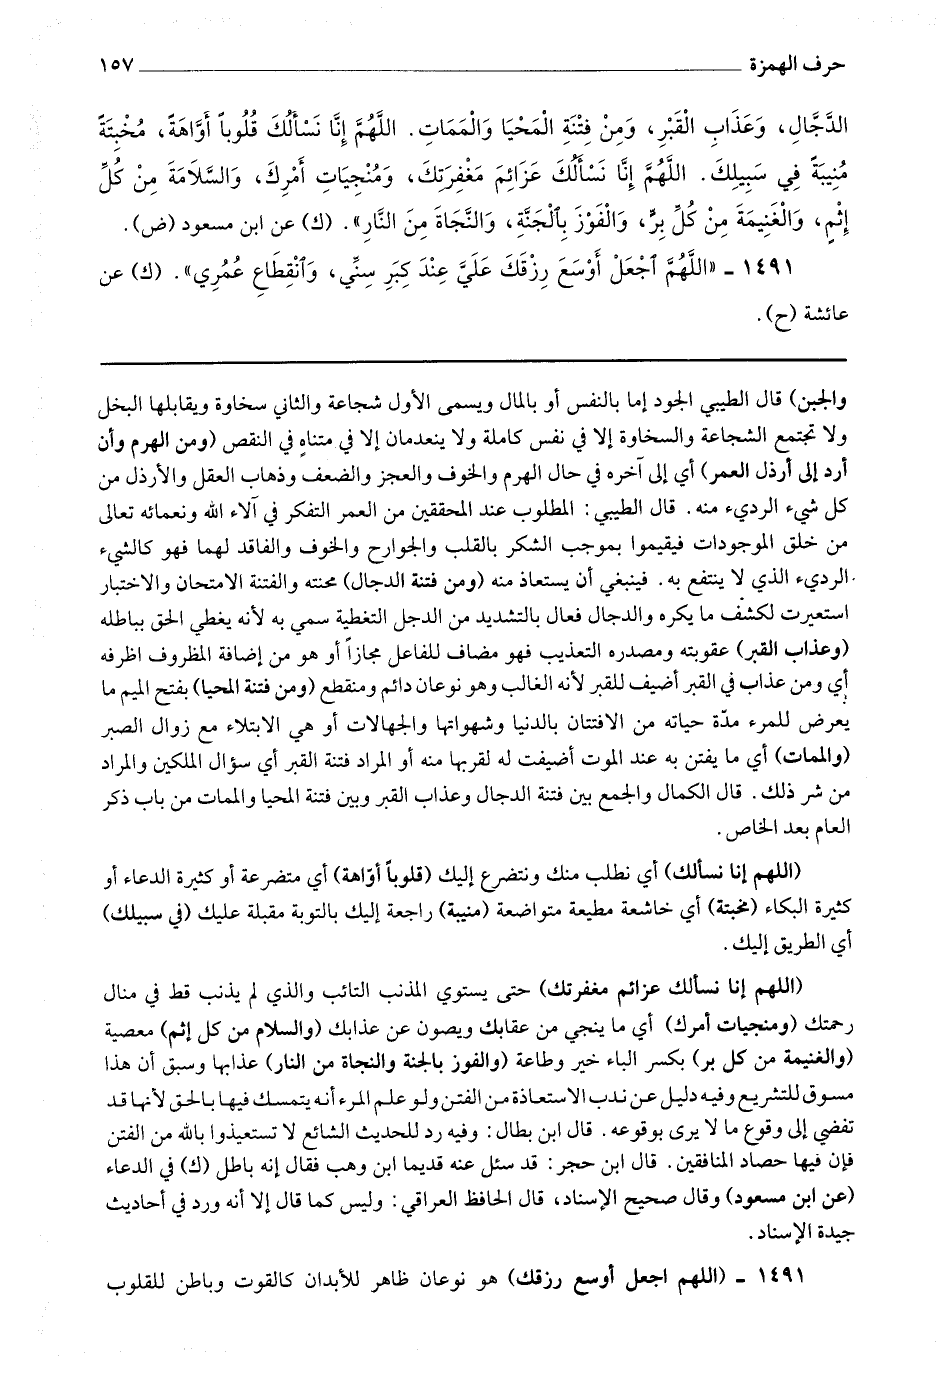 حرف الهمزة ١٥٧
الدَّجَّالِ، وَعَذَابِ الْقَبْرِ، وَمِنْ فِتْنَةِ الْمَحْيَا وَالْمَمَاتِ. اللَّهُمَّ إِنَّا نَسْأَلُكَ قُلُوباً أَوَّاهَةً، مُخْبِتَةً
مُنِيبَةً فِي سَبِيلِكَ. اللَّهُمَّ إِنَّا نَسْأَلُكَ عَزَائِمَ مَغْفِرَتِكَ، وَمُنْجِيَاتِ أَمْرِكَ، وَالسَّلَامَةَ مِنْ كُلِّ
إِثْمٍ، وَالْغَنِيمَةَ مِنْ كُلِّ بِرٍّ، وَالْفَوْزَ بِٱلْجَنَّةِ، وَالنَّجَاةَ مِنَ النَّارِ». (ك) عن ابن مسعود (ض).
١٤٩١ - «اللَّهُمَّ ٱجْعَلْ أَوْسَعَ رِزْقِكَ عَلَيَّ عِنْدَ كِبَرِ سِنِّي، وَٱنْقِطَاعِ عُمُرِي». (ك) عن
عائشة (ح).
والجبن) قال الطيبي الجود إما بالنفس أو بالمال ويسمى الأول شجاعة والثاني سخاوة ويقابلها البخل
ولا تجتمع الشجاعة والسخاوة إلا في نفس كاملة ولا ينعدمان إلا في متناهٍ في النقص (ومن الهرم وأن
أرد إلى أرذل العمر) أي إلى آخره في حال الهرم والخوف والعجز والضعف وذهاب العقل والأرذل من
كل شيء الرديء منه. قال الطيبي: المطلوب عند المحققين من العمر التفكر في آلاء الله ونعمائه تعالى
من خلق الموجودات فيقيموا بموجب الشكر بالقلب والجوارح والخوف والفاقد لهما فهو كالشيء
الرديء الذي لا ينتفع به. فينبغي أن يستعاذ منه (ومن فتنة الدجال) محنته والفتنة الامتحان والاختبار
استعيرت لكشف ما يكره والدجال فعال بالتشديد من الدجل التغطية سمي به لأنه يغطي الحق بباطله
(وعذاب القبر) عقوبته ومصدره التعذيب فهو مضاف للفاعل مجازاً أو هو من إضافة المظروف اظرفه
أي ومن عذاب في القبر أضيف للقبر لأنه الغالب وهو نوعان دائم ومنقطع (ومن فتنة المحيا) بفتح الميم ما
يعرض للمرء مدّة حياته من الافتتان بالدنيا وشهواتها والجهالات أو هي الابتلاء مع زوال الصبر
(والممات) أي ما يفتن به عند الموت أضيفت له لقربها منه أو المراد فتنة القبر أي سؤال الملكين والمراد
من شر ذلك. قال الكمال والجمع بين فتنة الدجال وعذاب القبر وبين فتنة المحيا والممات من باب ذكر
العام بعد الخاص.
(اللهم إنا نسألك) أي نطلب منك ونتضرع إليك (قلوباً أوّاهة) أي متضرعة أو كثيرة الدعاء أو
كثيرة البكاء (مخبتة) أي خاشعة مطيعة متواضعة (منيبة) راجعة إليك بالتوبة مقبلة عليك (في سبيلك)
أي الطريق إليك.
(اللهم إنا نسألك عزائم مغفرتك) حتى يستوي المذنب التائب والذي لم يذنب قط في منال
رحمتك (ومنجيات أمرك) أي ما ينجي من عقابك ويصون عن عذابك (والسلام من كل إثم) معصية
(والغنيمة من كل بر) بكسر الباء خير وطاعة (والفوز بالجنة والنجاة من النار) عذابها وسبق أن هذا
مسوق للتشريع وفيه دليل عن ندب الاستعاذة من الفتن ولو علم المرء أنه يتمسك فيها بالحق لأنها قد
تفضي إلى وقوع ما لا يرى بوقوعه. قال ابن بطال: وفيه رد للحديث الشائع لا تستعيذوا بالله من الفتن
فإن فيها حصاد المنافقين. قال ابن حجر: قد سئل عنه قديما ابن وهب فقال إنه باطل (ك) في الدعاء
(عن ابن مسعود) وقال صحيح الإسناد، قال الحافظ العراقي: وليس كما قال إلا أنه ورد في أحاديث
جيدة الإسناد.
١٤٩١ - (اللهم اجعل أوسع رزقك) هو نوعان ظاهر للأبدان كالقوت وباطن للقلوب